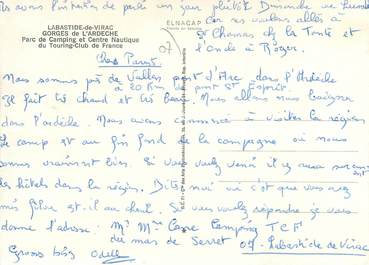 avons l'intention de partir un jour, plutôt Dimanche ou Lundi
si vous voulez allez à
St Chamas chez la Tante et
l'oncle à Roger.
LABASTIDE-de-VIRAC
GORGES de L'ARDECHE
Parc de Camping et Centre Nautique
du Touring-Club de France
ELNACAP
07
Chers Parents
Nous sommes près de Vallon pont d'Arc dans l'Ardèche
à 20 Km de pont St Esprit.
Il fait très chaud et très beau. Nous allons nous baigner
dans l'ardèche. Nous avons commencé à visiter la région
le camp est au fin fond de la campagne où nous
sommes vraiment bien. Si vous voulez venir il y aura
des hôtels dans la région. Dites moi vi c'est que vous
mes frère est-il au chaud. Si vous voulez répondre je vous
donne l'adresse. Mr Mme Camping TCF
du mas de Serret 07. Labastide de Virac
Gross bis Odile